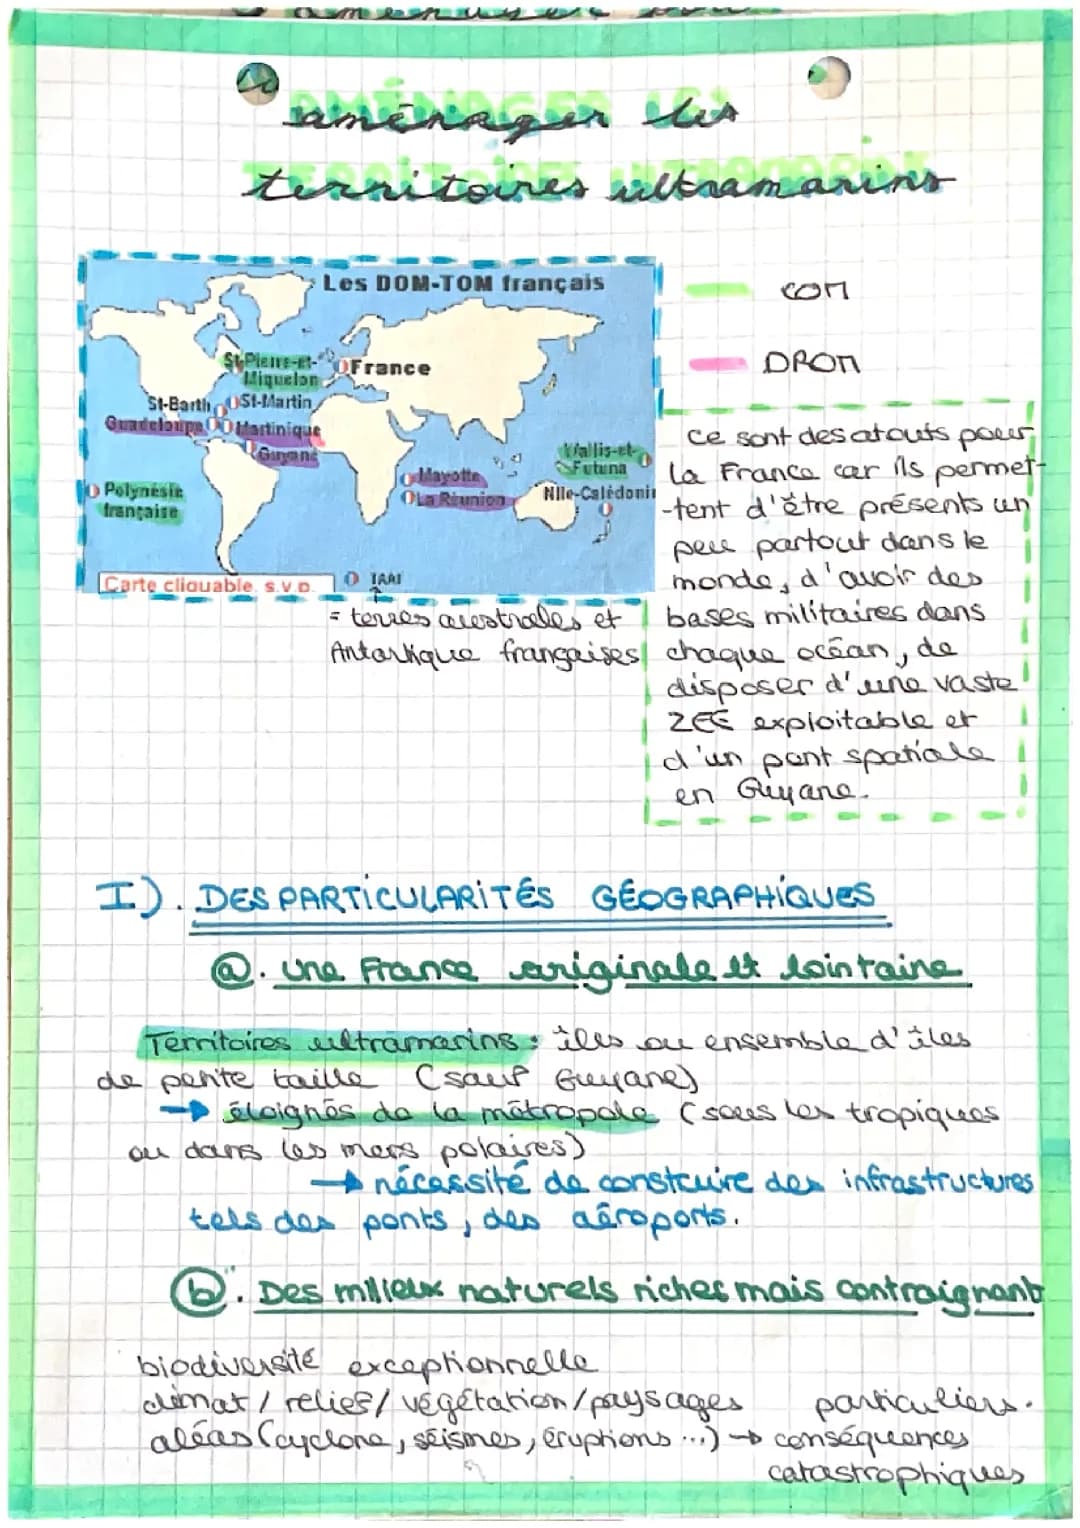 aménager les
territoires ultramarins
Les DOM-TOM français
St-Pierre-et-
Miquelon
France
St-Barth
St-Martin
Guadeloupe
Martinique
Guyane
Polynésie
française
Mayotte
La Réunion
Wallis-et-
Futuna
Nlle-Calédoni
Carte cliquable, s.v.p.
TAAF
= terres australes et
Antartique françaises
COM
DROM
Ce sont des atouts pour
la France car ils permet-
-tent d'être présents un
peu partout dans le
monde, d'avoir des
bases militaires dans
chaque océan, de
disposer d'une vaste
ZEE exploitable et
d'un port spatiale
en Guyane.
I). DES PARTICULARITÉS GÉOGRAPHIQUES
a. Une France originale et lointaine
Territoires ultramarins : îles ou ensemble d'îles
de petite taille (sauf Guyane)
→ éloignés de la métropole (sous les tropiques
ou dans les mers polaires)
→ nécessité de construire des infrastructures
tels des ponts, des aéroports.
b. Des milieux naturels riches mais contraignant
biodiversité exceptionnelle
climat / relief / végétation / paysages particuliers.
aléas (cyclone, séismes, éruptions ...) → conséquences
catastrophiques